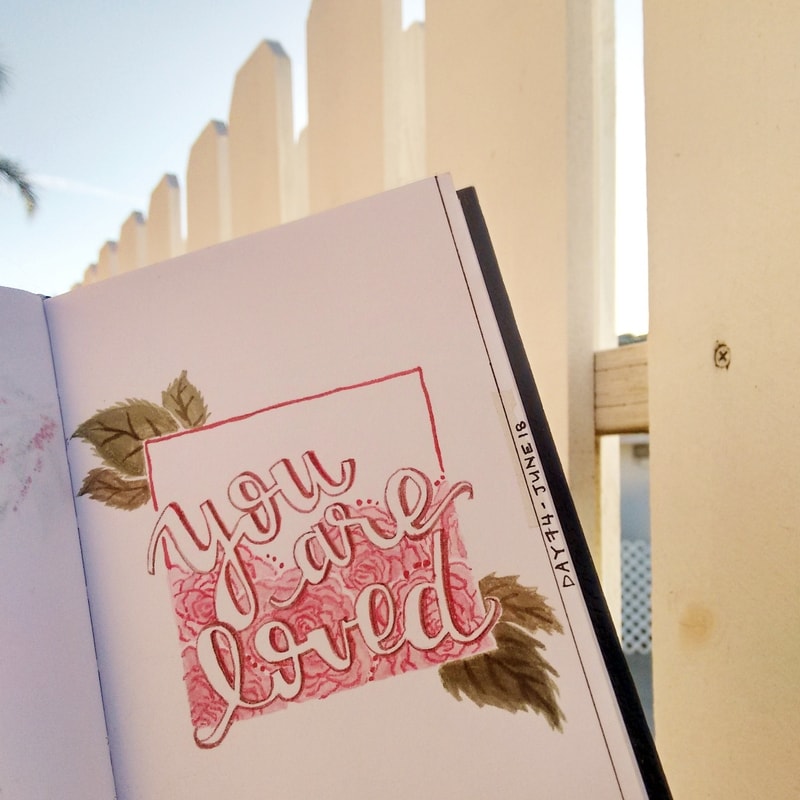 you
are
loved
DAY 74 - JUNE 18